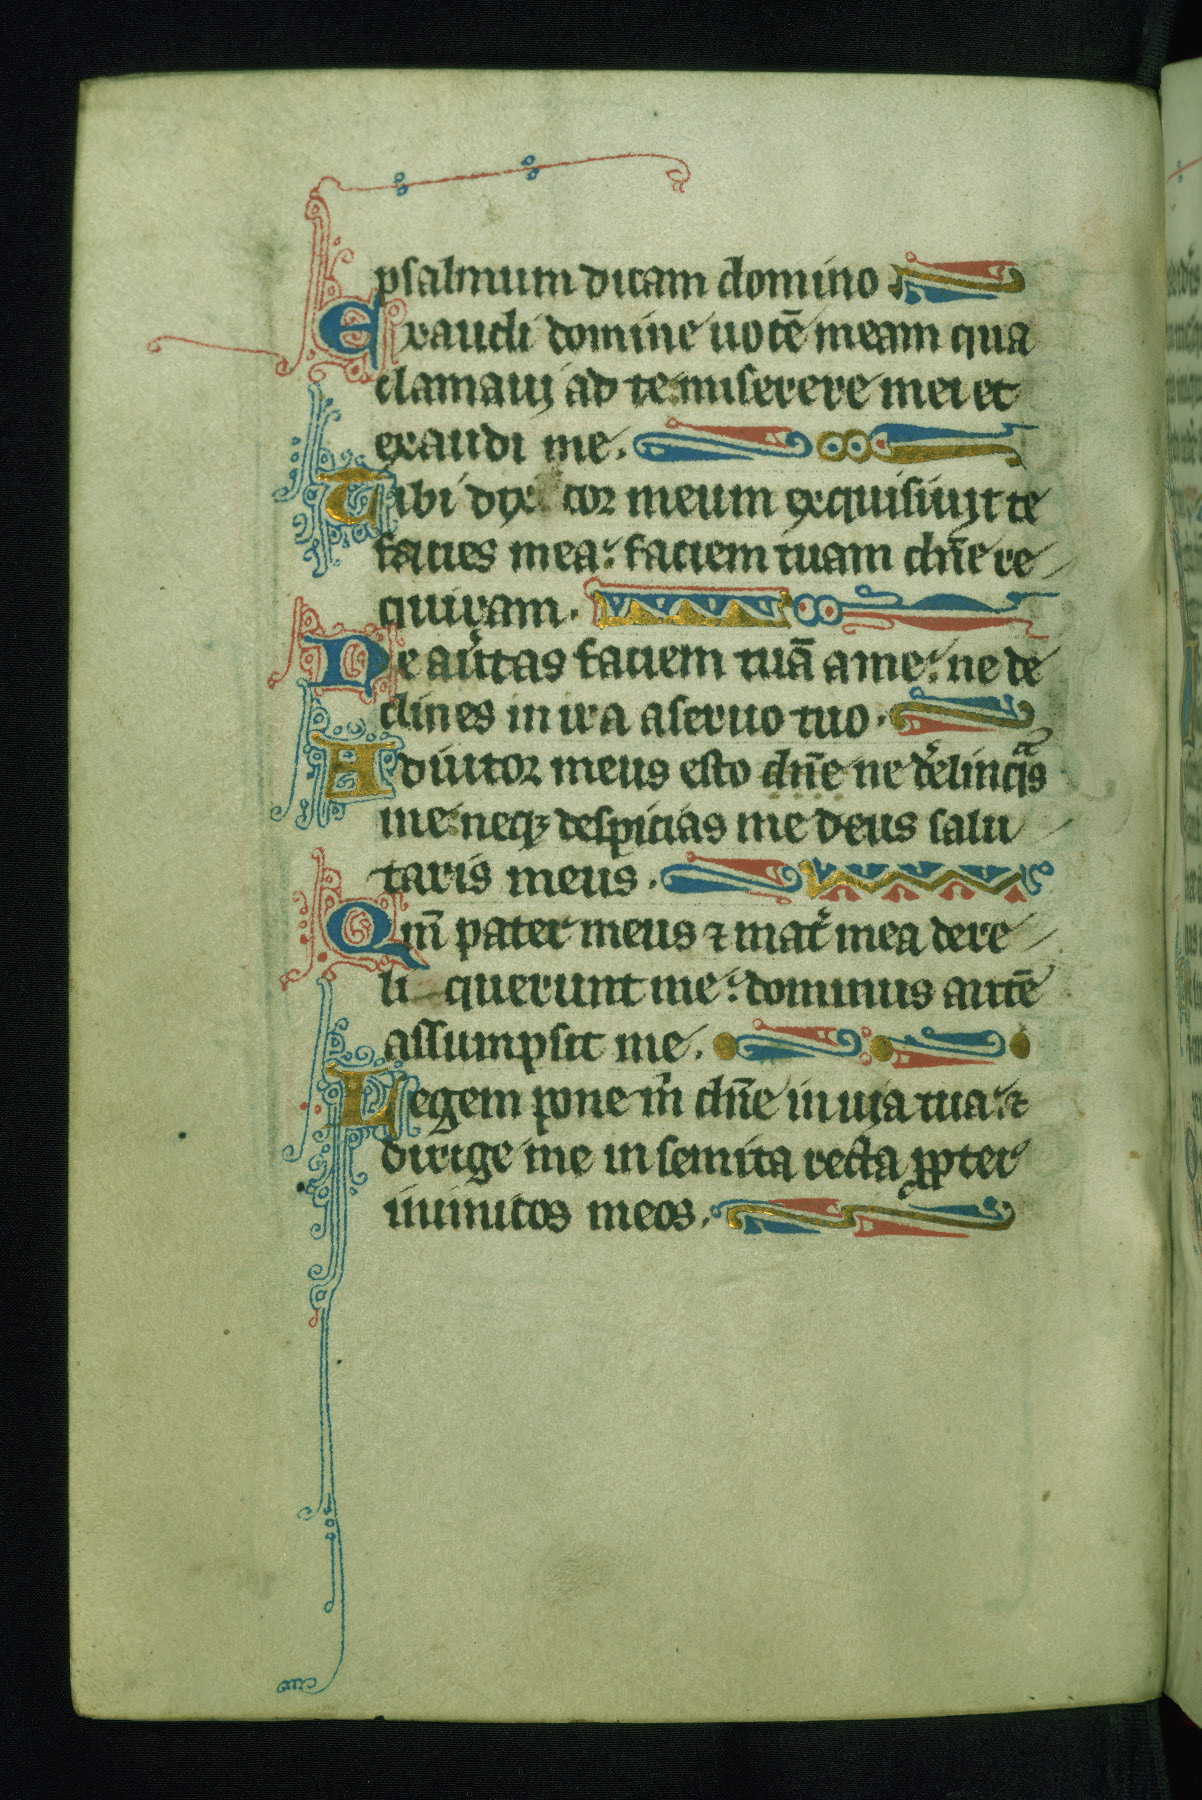 psalmum dicam domino
Exaudi domine uocē meam qua
clamaui ad te: miserere mei et
exaudi me.
Tibi dix cor meum exquisiuit te
facies mea: faciem tuam dn̄e re
quiram.
Ne au͛tas faciem tuā a me: ne de
clines in ira a seruo tuo.
Adiutor meus esto dn̄e ne d͛elinqͣs
me neqꝫ despicias me deus salu
taris meus.
Qm̄ pater meus ⁊ mat͛ mea dere
li querunt me: dominus autē
assumpsit me.
Legem pone m̍ dn̄e in uia tua: ⁊
dirige me in semita recta ꝓpter
inimicos meos.